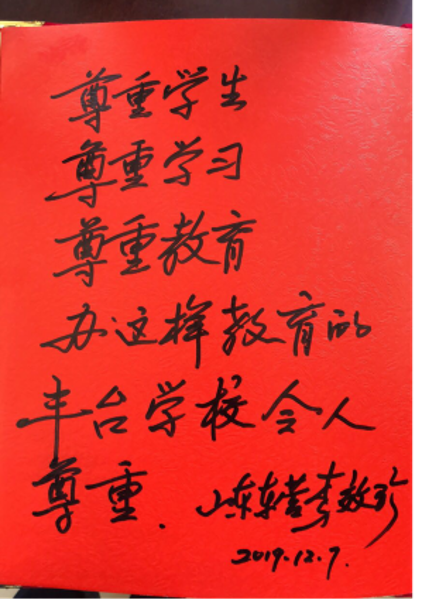 尊重学生
尊重学习
尊重教育
办这样教育的
丰台学校令人
尊重. 山东东营李
2019.12.7.